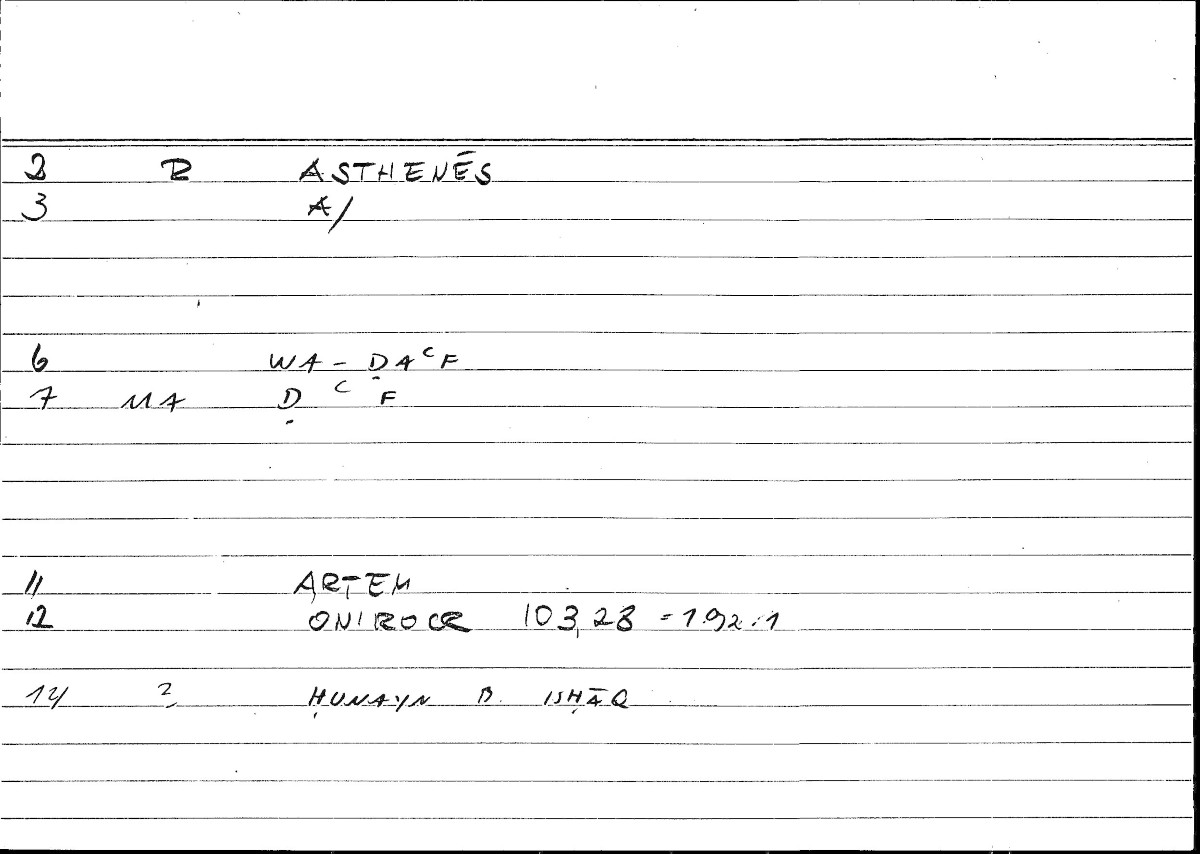 2 R ASTHENĒS
3 A/
6 WA-ḌAᶜF
7 MA Ḍ ᶜ F
11 ARTEM
12 ONIROCR 103,28 = 192:1
14 2 ḤUNAYN B. ISḤĀQ